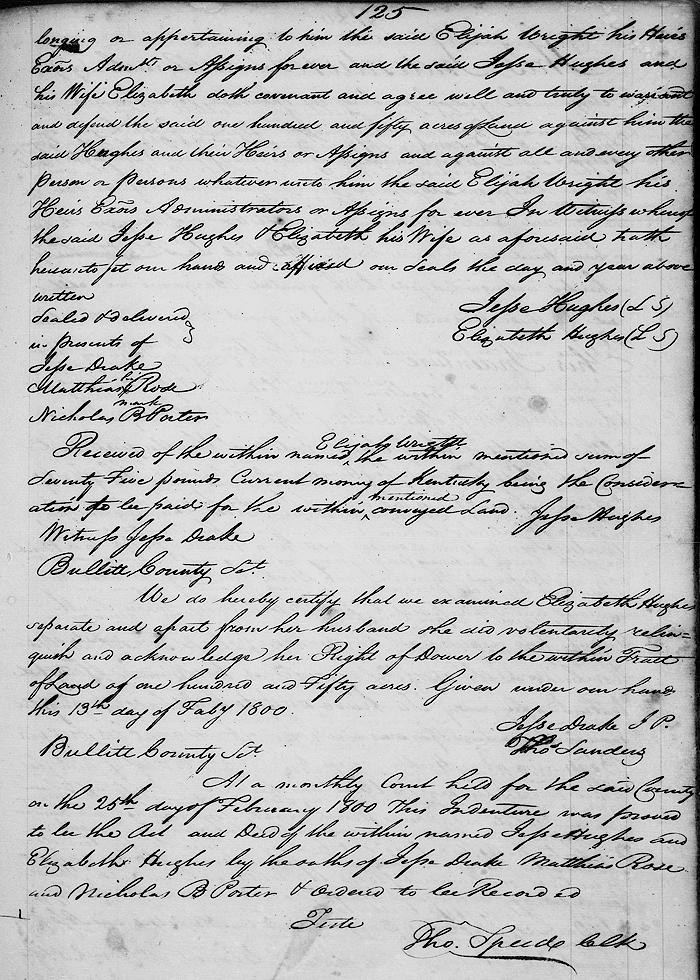 125
longing or appertaining to him the said Elijah Wright his Heirs
Exōrs Admst or Assigns for ever and the said Jesse Hughes and
his Wife Elizabeth doth covenant and agree well and truly to warrant
and defend the said one hundred and fifty acres of Land against him the
said Hughes and their Heirs or Assigns and against all and every other
Person or Persons whatever unto him the said Elijah Wright his
Heirs Exōrs Administrators or Assigns for ever In Witness whereof
the said Jesse Hughes & Elizabeth his Wife as aforesaid hath
hereunto set our hands and affixed our Seals the day and year above
written
Jesse Hughes (L S)
Sealed & delivered
Elizabeth Hughes (L S)
in presents of
Jesse Drake
Matthias Rose
mark
Nicholas B Porter
Elijah Wright
Received of the within named ^ the within mentioned sum of
Seventy Five pounds Current money of Kentucky being the Consider=
mentioned
ation to be paid for the within ^ conveyed Land. Jesse Hughes
Witness Jesse Drake
Bullitt County Sct.
We do hereby certify that we examined Elizabeth Hughes
separate and apart from her husband she did voluntarily relin=
quish and acknowledge her Right of Dower to the within Tract
of Land of one hundred and Fifty acres. Given under our hands
this 13th day of Faby 1800.
Jesse Drake J P.
Thos Sanders
Bullitt County Sct.
At a monthly Court held for the said County
on the 25th day of February 1800 This Indenture was proved
to be the Act and Deed of the within named Jesse Hughes and
Elizabeth Hughes by the oaths of Jesse Drake Matthias Rose
and Nicholas B Porter & Ordered to be Recorded
Teste
Tho. Speed Clk